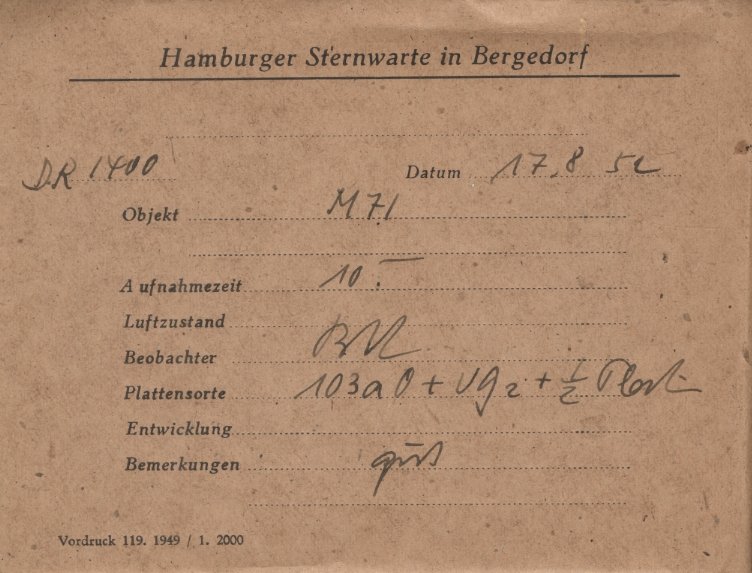 Hamburger Sternwarte in Bergedorf
DR 1400 Datum 17.8 52
Objekt M 71
Aufnahmezeit 10.–
Luftzustand
Beobachter
Plattensorte 103a O + UG2 + 1/2
Entwicklung
Bemerkungen gut
Vordruck 119. 1949 / 1. 2000